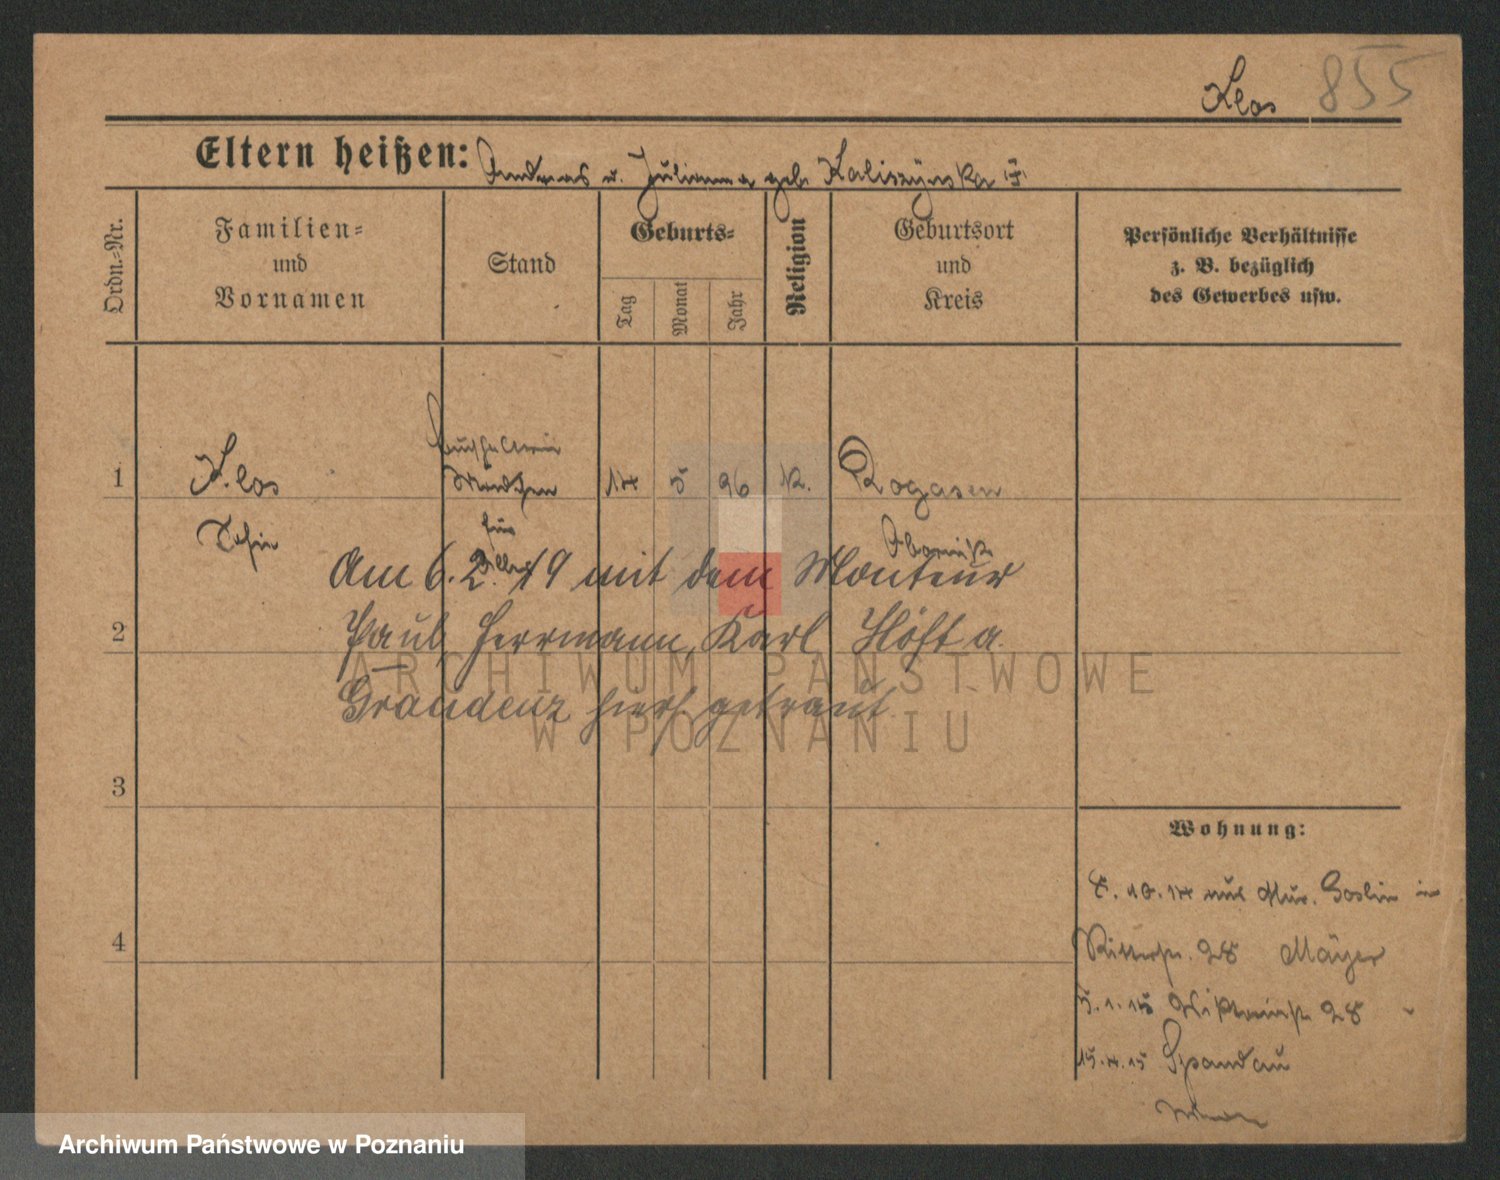 Klos 855
Eltern heißen: Andreas u. Julianna geb. Kaliszynska
Ordn.-Nr.
Familien-
und
Vornamen
Stand
Geburts-
Tag
Monat
Jahr
Religion
Geburtsort
und
Kreis
Persönliche Verhältnisse
z. B. bezüglich
des Gewerbes usw.
1 Klos Buchhalterin 14 5 96 K. Rogasen
Mädchen
für
Alles
Obornik
Am 6. 2. 19 mit dem Monteur
2 Paul Herrmann, Karl Höft a.
Graudenz hier getraut
3
4
Wohnung:
8. 10. 14 aus Mur. Goslin in
Ritterstr. 28 Mayer
5. 1. 15 28
15. 4. 15 Spandau
ARCHIWUM PAŃSTWOWE
W POZNANIU
Archiwum Państwowe w Poznaniu